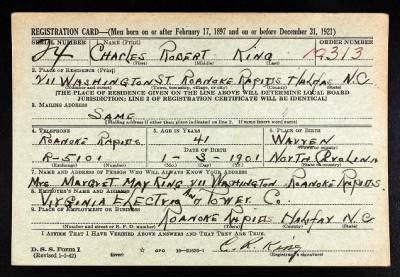 REGISTRATION CARD—(Men born on or after February 17, 1897 and on or before December 31, 1921)
SERIAL NUMBER 1. NAME (Print) ORDER NUMBER
CHARLES ROBERT KING 10313
(First) (Middle) (Last)
2. PLACE OF RESIDENCE (Print)
711 WASHINGTON ST. ROANOKE RAPIDS HALIFAX N.C.
(Number and street) (Town, township, village, or city) (County) (State)
[THE PLACE OF RESIDENCE GIVEN ON THE LINE ABOVE WILL DETERMINE LOCAL BOARD
JURISDICTION; LINE 2 OF REGISTRATION CERTIFICATE WILL BE IDENTICAL]
3. MAILING ADDRESS
SAME
[Mailing address if other than place indicated on line 2. If same insert word same]
4. TELEPHONE 5. AGE IN YEARS 6. PLACE OF BIRTH
ROANOKE RAPIDS 41 WARREN
DATE OF BIRTH (Town or county)
R-5101 1-3-1901 NORTH CAROLINA
(Exchange) (Number) (Mo.) (Day) (Yr.) (State or country)
7. NAME AND ADDRESS OF PERSON WHO WILL ALWAYS KNOW YOUR ADDRESS
MRS. MARGRET MAY KING 711 WASHINGTON ROANOKE RAPIDS.
8. EMPLOYER'S NAME AND ADDRESS
VIRGINIA ELECTRIC & POWER CO.
9. PLACE OF EMPLOYMENT OR BUSINESS
ROANOKE RAPIDS HALIFAX N.C.
(Number and street or R. F. D. number) (Town) (County) (State)
I AFFIRM THAT I HAVE VERIFIED ABOVE ANSWERS AND THAT THEY ARE TRUE.
D. S. S. Form 1 GPO C. R. King
(Revised 1-1-42) (Registrant's signature)